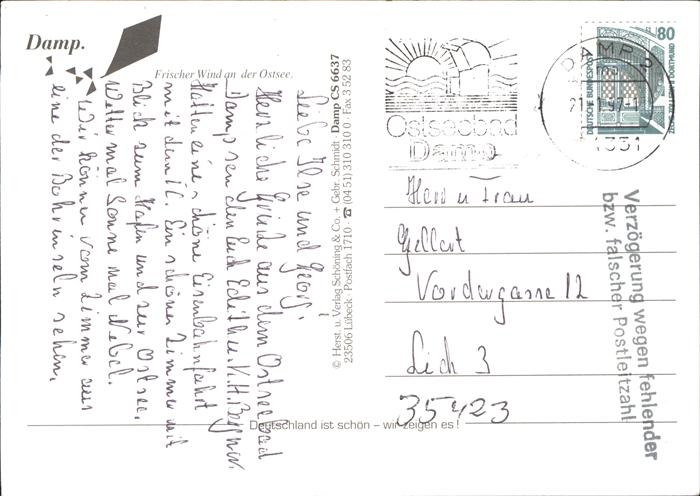 Damp.
Frischer Wind an der Ostsee.
Liebe Ilse und Georg!
Herzliche Grüße aus dem Ostseebad
Damp senden Euch Edith u. K.H.
Hatten eine schöne Eisenbahnfahrt
mit dem IC. Ein schönes Zimmer mit
Blick zum Hafen und zur Ostsee.
Wetter mal Sonne mal Nebel.
Wir können vom Zimmer aus
eine der Bohrinseln sehen.
© Herst. u. Verlag Schöning & Co. + Gebr. Schmidt Damp CS 6637
23506 Lübeck · Postfach 1710 · ☎ (04 51) 310 310 0 · Fax 3 52 83
Ostseebad
Damp
DAMP 2
2351
80
DEUTSCHE BUNDESPOST
Herr u Frau
Gellert
Vordergasse 12
Lich 3
35423
Verzögerung wegen fehlender
bzw. falscher Postleitzahl
Deutschland ist schön – wir zeigen es !